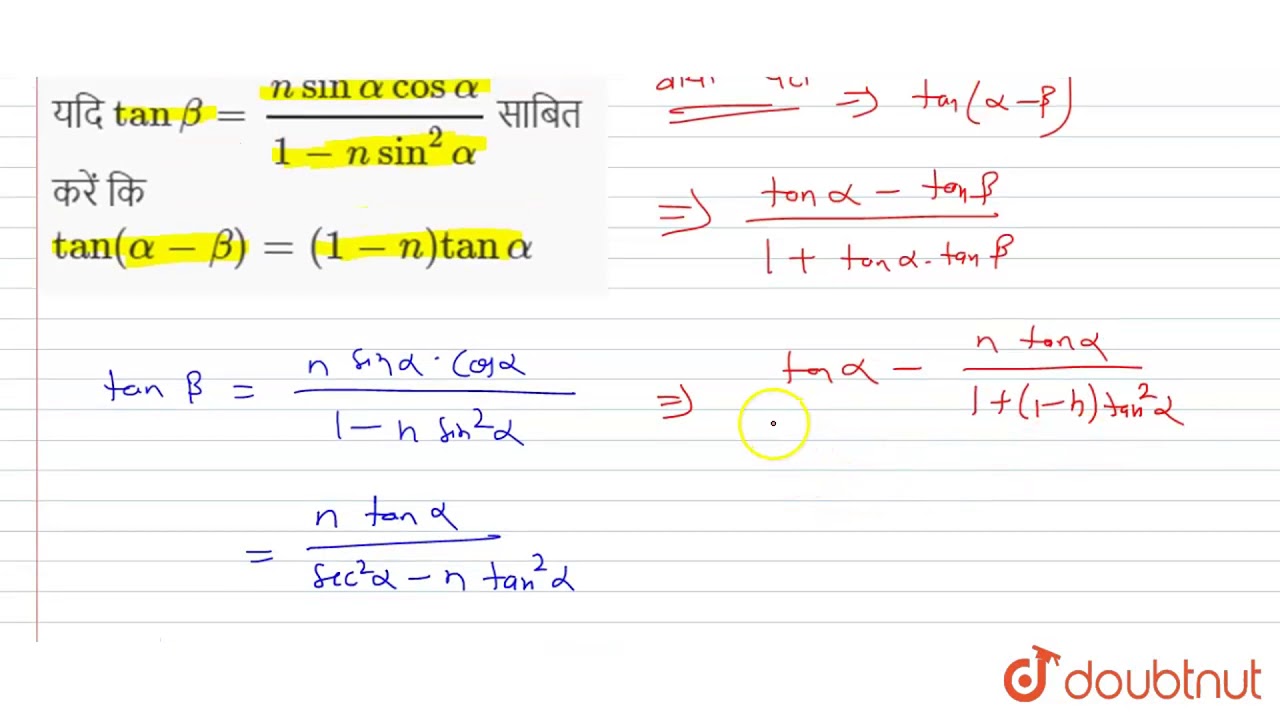 यदि tan β = n sin α cos α / 1 − n sin² α साबित
करें कि
tan(α − β) = (1 − n)tan α
tan β = n sinα · cosα / 1 − n sin²α
= n tan α / sec²α − n tan²α
⇒ tan(α − β)
⇒ tanα − tanβ / 1 + tanα · tanβ
⇒ tanα − n tanα / 1 + (1−n) tan²α
doubtnut